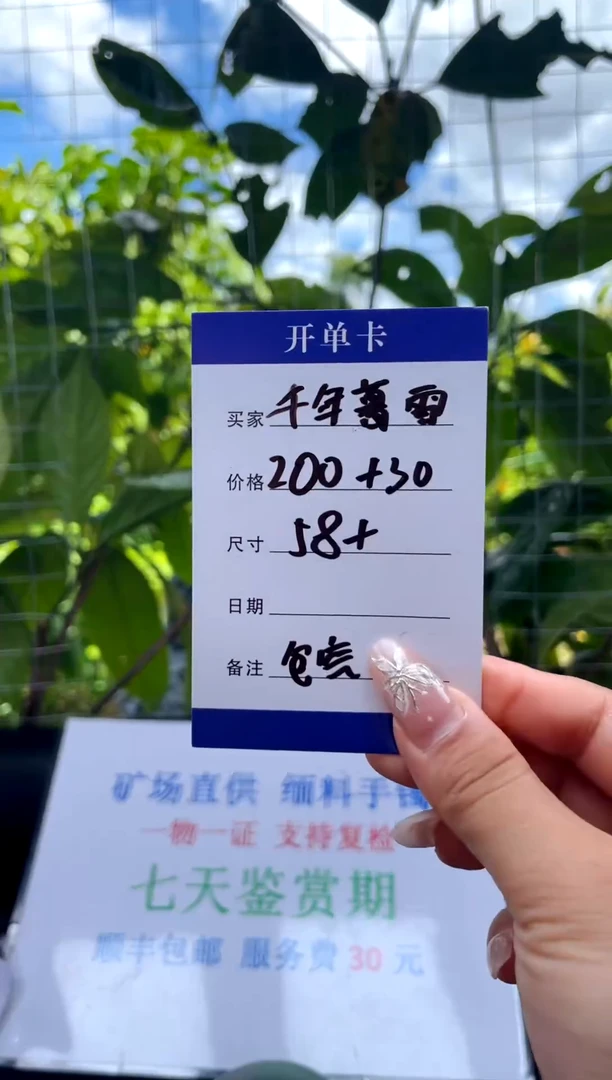 开单卡
买家 千年暮雪
价格 200+30
尺寸 58+
日期
备注
矿场直供 缅料手
一物一证 支持复检
七天鉴赏期
顺丰包邮 服务费30元